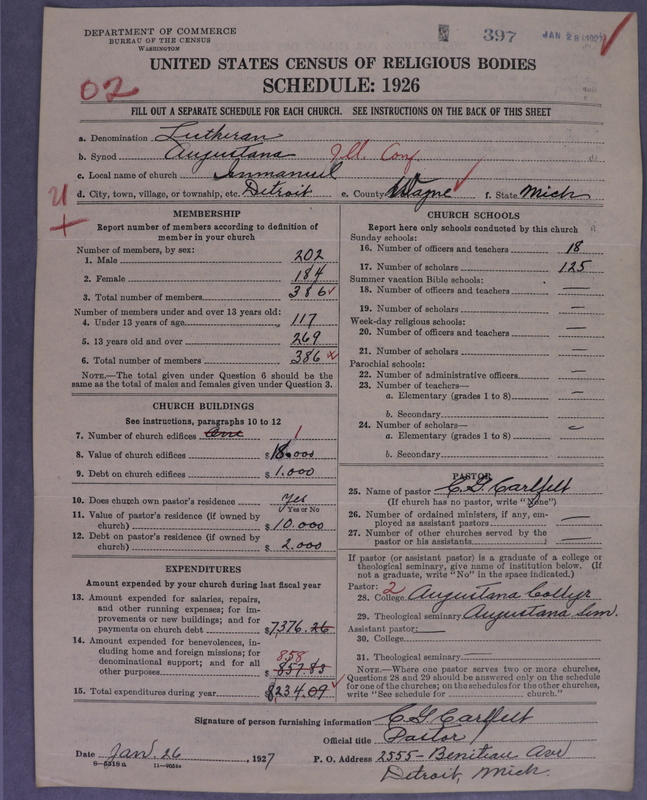 DEPARTMENT OF COMMERCE
BUREAU OF THE CENSUS
WASHINGTON
397
JAN 28 1927
UNITED STATES CENSUS OF RELIGIOUS BODIES
SCHEDULE: 1926
02
FILL OUT A SEPARATE SCHEDULE FOR EACH CHURCH. SEE INSTRUCTIONS ON THE BACK OF THIS SHEET
a. Denomination Lutheran
b. Synod Augustana Ill. Conf.
c. Local name of church Immanuel
d. City, town, village, or township, etc. Detroit e. County Wayne f. State Mich
MEMBERSHIP
Report number of members according to definition of
member in your church
Number of members, by sex:
1. Male 202
2. Female 184
3. Total number of members 386
Number of members under and over 13 years old:
4. Under 13 years of age 117
5. 13 years old and over 269
6. Total number of members 386
NOTE.—The total given under Question 6 should be
same as the total of males and females given under Question 3.
CHURCH BUILDINGS
See instructions, paragraphs 10 to 12
7. Number of church edifices One 1
8. Value of church edifices $18.000
9. Debt on church edifices $1.000
10. Does church own pastor's residence? Yes
Yes or No
11. Value of pastor's residence (if owned by
church) $10.000
12. Debt on pastor's residence (if owned by
church) $2.000
EXPENDITURES
Amount expended by your church during last fiscal year
13. Amount expended for salaries, repairs,
and other running expenses; for im-
provements or new buildings; and for
payments on church debt $7376.26
14. Amount expended for benevolences, in-
cluding home and foreign missions; for
denominational support; and for all
other purposes $857.83 858
15. Total expenditures during year $8234.09
CHURCH SCHOOLS
Report here only schools conducted by this church
Sunday schools:
16. Number of officers and teachers 18
17. Number of scholars 125
Summer vacation Bible schools:
18. Number of officers and teachers —
19. Number of scholars —
Week-day religious schools:
20. Number of officers and teachers —
21. Number of scholars —
Parochial schools:
22. Number of administrative officers —
23. Number of teachers—
a. Elementary (grades 1 to 8) —
b. Secondary
24. Number of scholars—
a. Elementary (grades 1 to 8)
b. Secondary
PASTOR
25. Name of pastor C. G. Carlfelt
(If church has no pastor, write "None")
26. Number of ordained ministers, if any, em-
ployed as assistant pastors —
27. Number of other churches served by the
pastor or his assistants —
If pastor (or assistant pastor) is a graduate of a college or
theological seminary, give name of institution below. (If
not a graduate, write "No" in the space indicated.)
Pastor: 2
28. College Augustana College
29. Theological seminary Augustana Sem.
Assistant pastor: —
30. College
31. Theological seminary —
NOTE.—Where one pastor serves two or more churches,
Questions 28 and 29 should be answered only on the schedule
for one of the churches; on the schedules for the other churches,
write "See schedule for church."
Signature of person furnishing information C G Carlfelt
Official title Pastor
Date Jan 26, 1927 P. O. Address 2555- Beniteau Ave
Detroit, Mich.